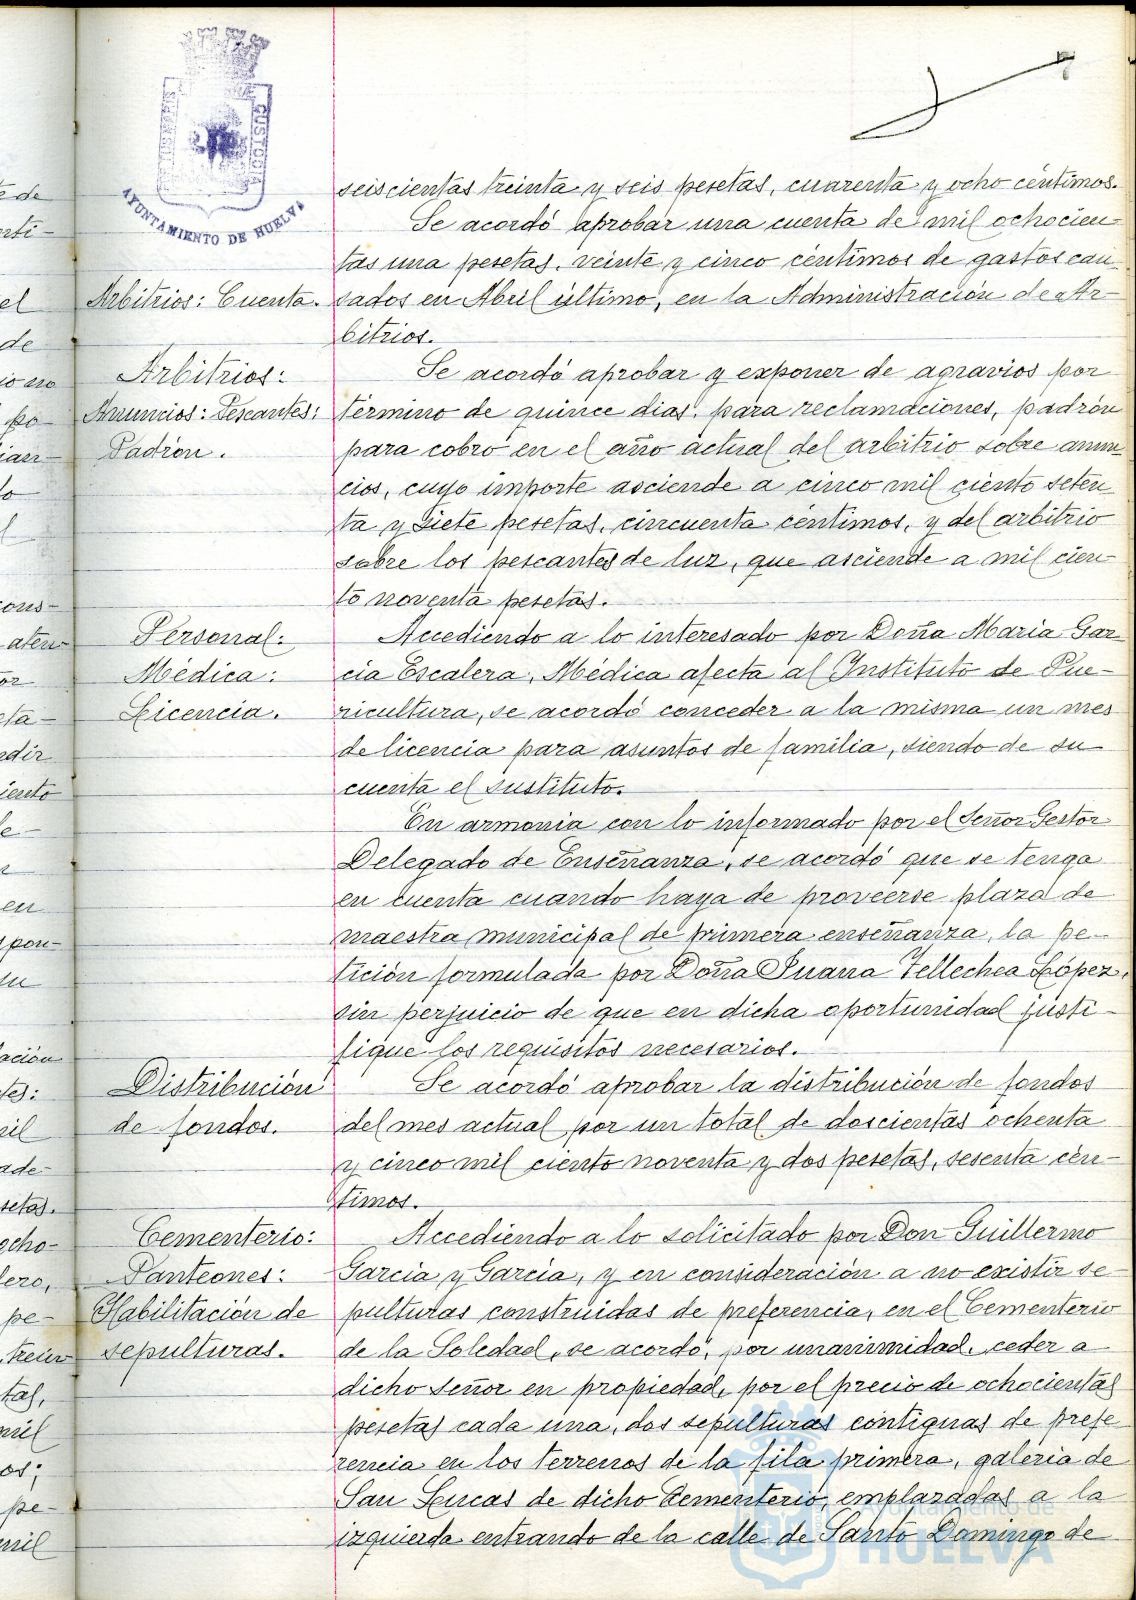 7
PORTUS MARIS
CUSTODIA
AYUNTAMIENTO DE HUELVA
seiscientas treinta y seis pesetas, cuarenta y ocho céntimos.
Se acordó aprobar una cuenta de mil ochocien-
tas una pesetas, veinte y cinco céntimos de gastos cau-
Arbitrios: Cuenta.
sados en Abril último, en la Administración de Ar-
bitrios.
Arbitrios:
Anuncios: Pescantes:
Padrón.
Se acordó aprobar y exponer de agravios por
término de quince dias, para reclamaciones, padrón
para cobro en el año actual del arbitrio sobre anun-
cios, cuyo importe asciende a cinco mil ciento seten-
ta y siete pesetas, cincuenta céntimos, y del arbitrio
sobre los pescantes de luz, que asciende a mil cien-
to noventa pesetas.
Personal:
Médica:
Licencia.
Accediendo a lo interesado por Doña Maria Gar-
cia Escalera, Médica afecta al Instituto de Pue-
ricultura, se acordó conceder a la misma un mes
de licencia para asuntos de familia, siendo de su
cuenta el sustituto.
En armonia con lo informado por el Señor Gestor
Delegado de Enseñanza, se acordó que se tenga
en cuenta cuando haya de proveerse plaza de
maestra municipal de primera enseñanza, la pe-
tición formulada por Doña Juana Tellechea López,
sin perjuicio de que en dicha oportunidad justi-
fique los requisitos necesarios.
Distribución
de fondos.
Se acordó aprobar la distribución de fondos
del mes actual por un total de doscientas ochenta
y cinco mil ciento noventa y dos pesetas, sesenta cén-
timos.
Cementerio:
Panteones:
Habilitación de
sepulturas.
Accediendo a lo solicitado por Don Guillermo
Garcia y Garcia, y en consideración a no existir se-
pulturas construidas de preferencia, en el Cementerio
de la Soledad, se acordó, por unanimidad, ceder a
dicho señor en propiedad, por el precio de ochocientas
pesetas cada una, dos sepulturas contiguas de prefe-
rencia en los terrenos de la fila primera, galeria de
San Lucas de dicho Cementerio, emplazadas a la
izquierda entrando de la calle de Santo Domingo de
Ayuntamiento de
HUELVA